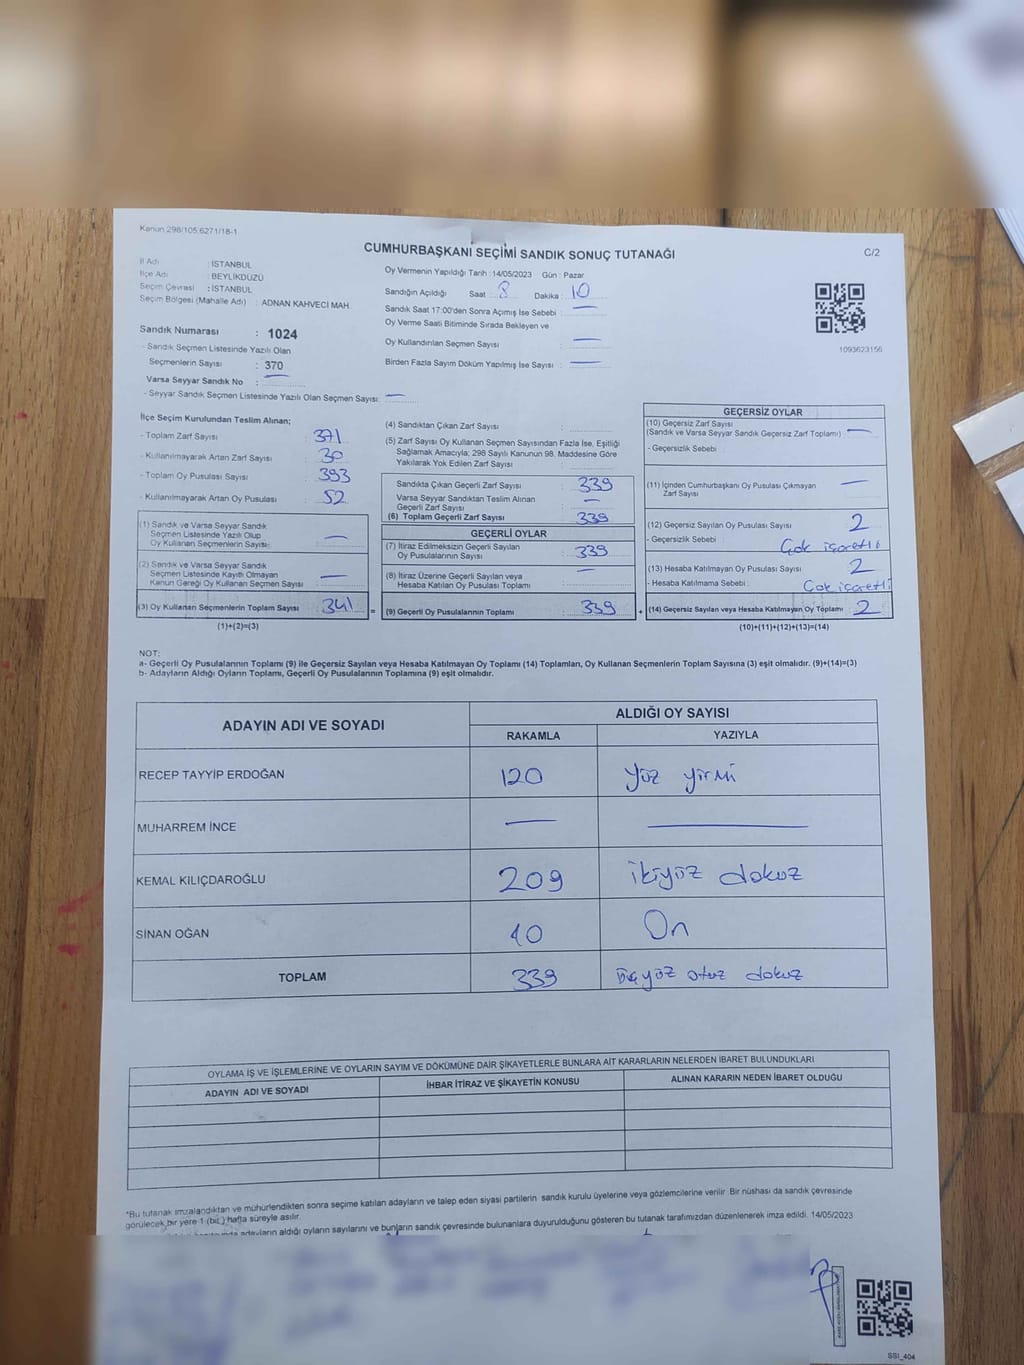 Kanun 298/105 6271/18-1
CUMHURBAŞKANI SEÇİMİ SANDIK SONUÇ TUTANAĞI
C/2
İl Adı : İSTANBUL
İlçe Adı : BEYLİKDÜZÜ
Seçim Çevresi : İSTANBUL
Seçim Bölgesi (Mahalle Adı) : ADNAN KAHVECİ MAH.
Sandık Numarası : 1024
- Sandık Seçmen Listesinde Yazılı Olan
Seçmenlerin Sayısı : 370
Varsa Seyyar Sandık No : —
- Seyyar Sandık Seçmen Listesinde Yazılı Olan Seçmen Sayısı: —
Oy Vermenin Yapıldığı Tarih : 14/05/2023 Gün : Pazar
Sandığın Açıldığı Saat : 8 Dakika : 10
Sandık Saat 17:00'den Sonra Açımış İse Sebebi : —
Oy Verme Saati Bitiminde Sırada Bekleyen ve
Oy Kullandırılan Seçmen Sayısı : —
Birden Fazla Sayım Döküm Yapılmış İse Sayısı : —
1093623156
İlçe Seçim Kurulundan Teslim Alınan;
- Toplam Zarf Sayısı : 371
- Kullanılmayarak Artan Zarf Sayısı : 30
- Toplam Oy Pusulası Sayısı : 393
- Kullanılmayarak Artan Oy Pusulası : 52
(1) Sandık ve Varsa Seyyar Sandık
Seçmen Listesinde Yazılı Olup
Oy Kullanan Seçmenlerin Sayısı: —
(2) Sandık ve Varsa Seyyar Sandık
Seçmen Listesinde Kayıtlı Olmayan
Kanun Gereği Oy Kullanan Seçmen Sayısı —
(3) Oy Kullanan Seçmenlerin Toplam Sayısı 341 =
(1)+(2)=(3)
(4) Sandıktan Çıkan Zarf Sayısı :
(5) Zarf Sayısı Oy Kullanan Seçmen Sayısından Fazla İse, Eşitliği
Sağlamak Amacıyla; 298 Sayılı Kanunun 98. Maddesine Göre
Yakılarak Yok Edilen Zarf Sayısı :
Sandıkta Çıkan Geçerli Zarf Sayısı : 339
Varsa Seyyar Sandıktan Teslim Alınan
Geçerli Zarf Sayısı : —
(6) Toplam Geçerli Zarf Sayısı : 339
GEÇERLİ OYLAR
(7) İtiraz Edilmeksizin Geçerli Sayılan
Oy Pusulalarının Sayısı : 339
(8) İtiraz Üzerine Geçerli Sayılan veya
Hesaba Katılan Oy Pusulası Toplamı : —
(9) Geçerli Oy Pusulalarının Toplamı : 339 +
GEÇERSİZ OYLAR
(10) Geçersiz Zarf Sayısı
(Sandık ve Varsa Seyyar Sandık Geçersiz Zarf Toplamı) : —
- Geçersizlik Sebebi :
(11) İçinden Cumhurbaşkanı Oy Pusulası Çıkmayan
Zarf Sayısı : —
(12) Geçersiz Sayılan Oy Pusulası Sayısı : 2
- Geçersizlik Sebebi : Çok işaretli
(13) Hesaba Katılmayan Oy Pusulası Sayısı : 2
- Hesaba Katılmama Sebebi : Çok işaretli
(14) Geçersiz Sayılan veya Hesaba Katılmayan Oy Toplamı : 2
(10)+(11)+(12)+(13)=(14)
NOT:
a- Geçerli Oy Pusulalarının Toplamı (9) ile Geçersiz Sayılan veya Hesaba Katılmayan Oy Toplamı (14) Toplamları, Oy Kullanan Seçmenlerin Toplam Sayısına (3) eşit olmalıdır. (9)+(14)=(3)
b- Adayların Aldığı Oyların Toplamı, Geçerli Oy Pusulalarının Toplamına (9) eşit olmalıdır.
ADAYIN ADI VE SOYADI
ALDIĞI OY SAYISI
RAKAMLA YAZIYLA
RECEP TAYYİP ERDOĞAN 120 Yüz yirmi
MUHARREM İNCE — —
KEMAL KILIÇDAROĞLU 209 ikiyüz dokuz
SİNAN OĞAN 10 On
TOPLAM 339 üçyüz otuz dokuz
OYLAMA İŞ VE İŞLEMLERİNE VE OYLARIN SAYIM VE DÖKÜMÜNE DAİR ŞİKAYETLERLE BUNLARA AİT KARARLARIN NELERDEN İBARET BULUNDUKLARI
ADAYIN ADI VE SOYADI İHBAR İTİRAZ VE ŞİKAYETİN KONUSU ALINAN KARARIN NEDEN İBARET OLDUĞU
*Bu tutanak imzalandıktan ve mühürlendikten sonra seçime katılan adayların ve talep eden siyasi partilerin sandık kurulu üyelerine veya gözlemcilerine verilir. Bir nüshası da sandık çevresinde
görülecek bir yere 1 (bir) hafta süreyle asılır.
adayların aldığı oyların sayılarını ve bunların sandık çevresinde bulunanlara duyurulduğunu gösteren bu tutanak tarafımızdan düzenlenerek imza edildi. 14/05/2023
SSI_404